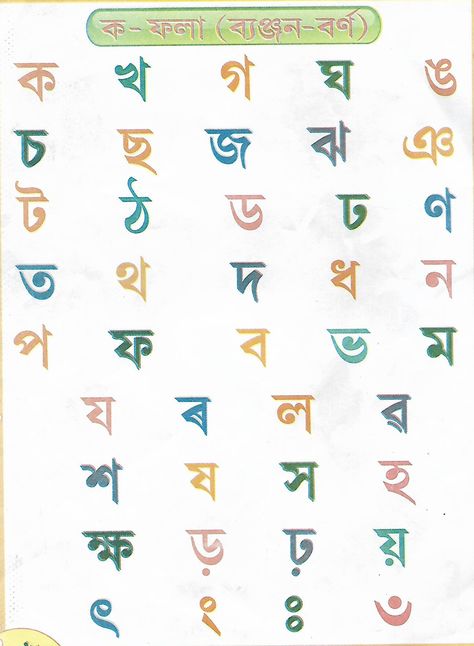 ক - ফলা (ব্যঞ্জন-বৰ্ণ)
ক খ গ ঘ ঙ
চ ছ জ ঝ ঞ
ট ঠ ড ঢ ণ
ত থ দ ধ ন
প ফ ব ভ ম
য ৰ ল ৱ
শ ষ স হ
ক্ষ ড় ঢ় য়
ৎ ং ঃ ঁ